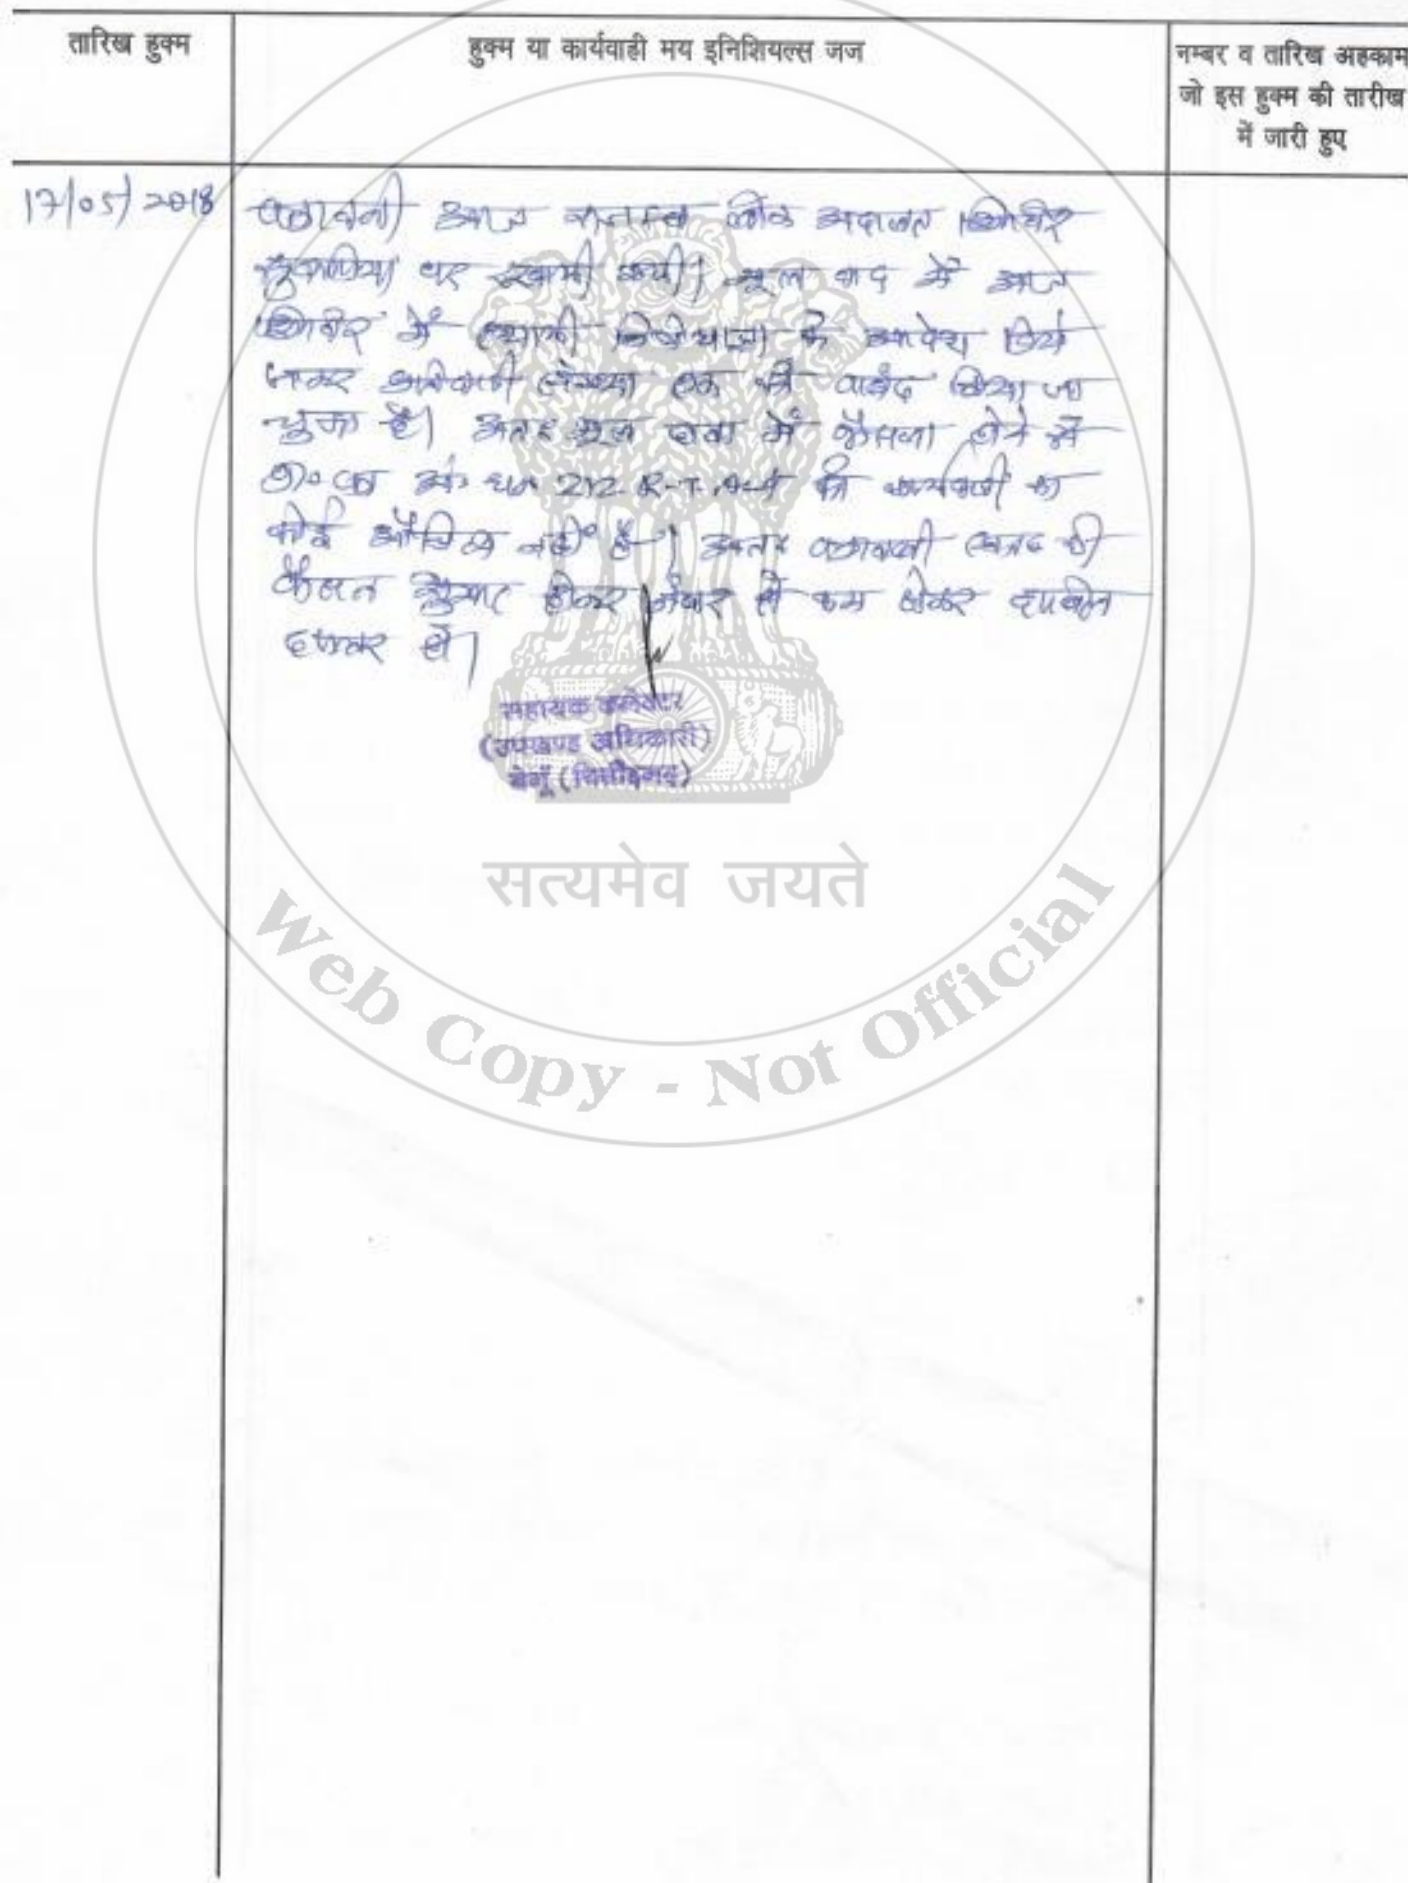 तारिख हुक्म
हुक्म या कार्यवाही मय इनिशियल्स जज
नम्बर व तारिख अहकाम
जो इस हुक्म की तारीख
में जारी हुए
17/05/2018
पत्रावली आज राजस्व लोक अदालत शिविर
पर रखी गयी। मूल वाद में आज
शिविर में स्थायी निषेधाज्ञा के आदेश दिये
जाकर प्रतिवादी संख्या एक को पाबंद किया जा
चुका है। अतः मूल दावा में फैसला होने से
प्रा० पत्र अं० धारा 212 R.T. Act की कार्यवाही का
कोई औचित्य नहीं है। अतः पत्रावली
फैसल शुमार होकर नंबर से कम होकर दाखिल
दफ्तर हो।
सहायक कलेक्टर
(उपखण्ड अधिकारी)
बेगूँ (चित्तौड़गढ़)
सत्यमेव जयते
Web Copy - Not Official